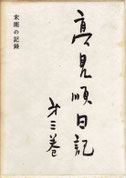 高見順日記
第三巻
末期の記録